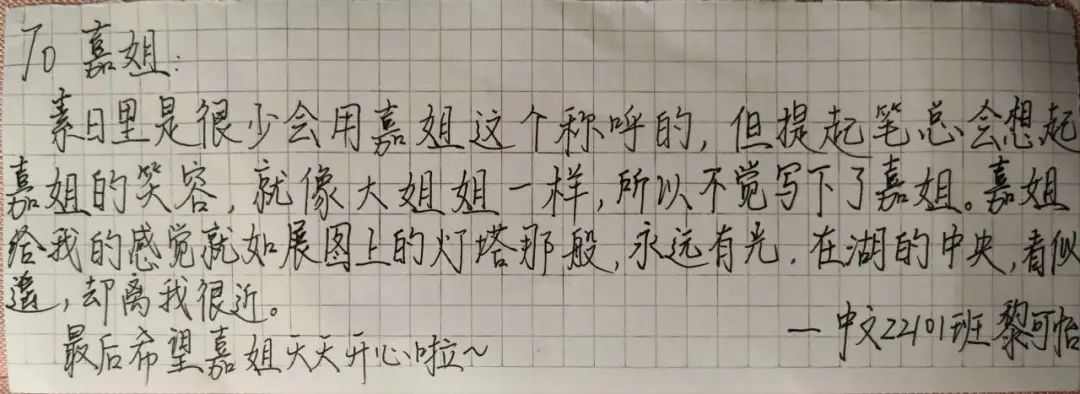 To 嘉姐:
素日里是很少会用嘉姐这个称呼的,但提起笔总会想起
嘉姐的笑容,就像大姐姐一样,所以不觉写下了嘉姐。嘉姐
给我的感觉就如展图上的灯塔那般,永远有光.在湖的中央,看似
遥,却离我很近。
最后希望嘉姐天天开心啦~
—中文22101班 黎可怡